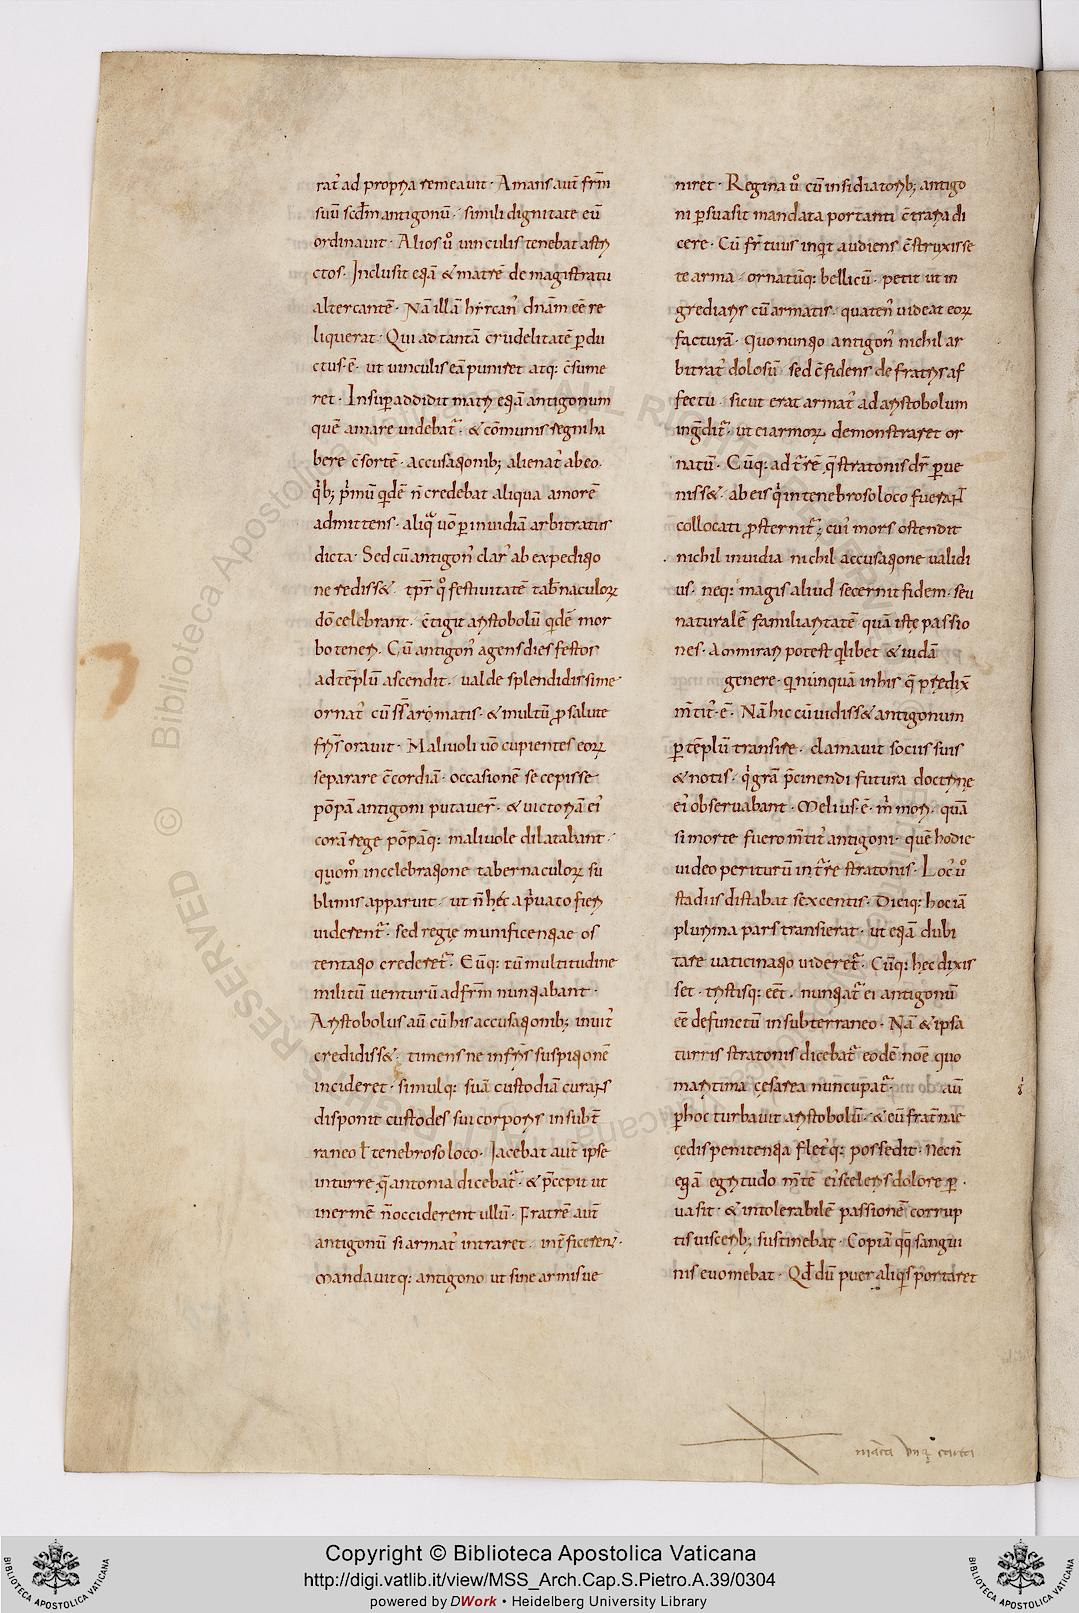 rat᷑ ad propria remeauit · Amans aut̄ fr̄m
suū scd̄m antigonū · simili dignitate eū
ordinauit · Alios u᷑o uinculis tenebat astri
ctos · Inclusit etiā & matrē de magistratu
altercantē · Nā illā hẏrcan᷑ dn̄am eē re
liquerat · Qui ad tantā crudelitatē ꝑdu
ctus · ē · ut uinculis eā puniret atq: c̄sume
ret · Insuꝑ addidit matri etiā antigonum
quē amare uidebat᷑ · & cōmunis regni ha
bere c̄sortē · accusationib; alienat᷑ ab eo ·
q̇b; p̄mū qidē n̄ credebat aliqua amorē
admittens · aliq̄ uō ꝑ inuidiā arbitratus
dicta · Sed cū antigon᷑ clar᷑ ab expeditio
ne rediss& · tꝑr qo festiuitatē tab̄naculoꝝ
dō celebrant · c̄tigit aristobolū qidē mor
bo teneri · Cū antigon᷑ agens dies festos
ad tēplū ascendit · ualde splendidissime
ornat᷑ cū ss̄ armatis · & multū ꝓ salute
fr̄is orauit · Maliuoli uō cupientes eoꝝ
separare c̄cordiā · occasionē se cepisse
pōpā antigoni putauer̄ · & uictoriā ei᷑
corā rege pōpāq: maliuole dilatabant ·
quom̊ in celebratione tabernaculoꝝ su
blimis apparuit · ut n̄ héc a p̄uato fieri
uiderent᷑ · sed regię munificentiae os
tentatio crederet᷑ · Eūq: tū multitudine
militū uenturū ad fr̄m nuntiabant ·
Aristobolus aū cū his accusationib; inuit᷑
credidiss& · timens ne in fr̄is suspitionē
incideret · simulq: suā custodiā curans
disponit custodes sui corporis in subt̄
raneo ł tenebroso loco · Iacebat aut̄ ipse
in turre q̄ antonia dicebat᷑ · & p̄cepit ut
inermē n̄ occiderent ullū · Fratrē aut̄
antigonū si armat᷑ intraret · int̄ficerent᷑ ·
Mandauitq: antigono ut sine armis ue
niret · Regina u᷑o cū insidiatorib; antigo
ni ꝑsuasit mandata portanti c̄traria di
cere · Cū fr̄ tuus inqit audiens c̄struxisse
te arma · ornatūq: bellicū · petit ut in
grediaris cū armatis · quaten᷑ uideat eoꝝ
facturā · Quo nuntio antigon᷑ nichil ar
bitrat᷑ dolosū · sed c̄fidens de fratris af
fectu · sicut erat armat᷑ ad aristobolum
ingdit᷑ · ut ei armoꝝ demonstraret or
natū · Cūq: ad t᷑rē q̄ stratonis dr̄ ꝑue
niss& · ab eis qi in tenebroso loco fuerant
collocati ꝓsternit᷑; cui᷑ mors ostendit
nichil inuidia nichil accusatione ualidi
us · neq: magis aliud secernit fidem · seu
naturalē familiaritatē quā iste passio
nes · Ammirari potest qilibet & iudā
genere · qi nunquā in his q̄ p̄dixit
m̄tit᷑ · ē · Nā hic cū uidiss& antigonum
ꝑ tēplū transire · clamauit sociis suis
& notis · qi grā p̄cinendi futura doctrinę
ei᷑ obseruabant · Melius · ē · m̄ mori · quā
si morte fuero m̄tit᷑ antigoni · quē hodie
uideo periturū in t᷑re stratonis · Loc᷑ u᷑o
stadiis distabat sexcentis · Dieiq: hoc iā
plurima pars transierat · ut etiā dubi
tare uaticinatio uideret᷑ · Cūq: hec dixis
set · tristisq: eēt · nuntiat᷑ ei antigonū
eē defunctū in subterraneo · Nā & ipsa
turris stratonis dicebat᷑ eodē noē quo
maritima cęsarea nuncupat᷑ · aū
ꝑ hoc turbauit aristobolū · & eū frat̄nae
cędis penitentia flet᷑q: possedit · necn̄
etiā egritudo m̄tē ei᷑ sceleris dolore ꝑ
uasit · & intolerabilē passionē corrup
tis uiscerib; sustinebat · Copiā qq sangui
nis euomebat · Qd̄ dū puer aliqis portaret
Copyright © Biblioteca Apostolica Vaticana
http://digi.vatlib.it/view/MSS_Arch.Cap.S.Pietro.A.39/0304
powered by DWork • Heidelberg University Library